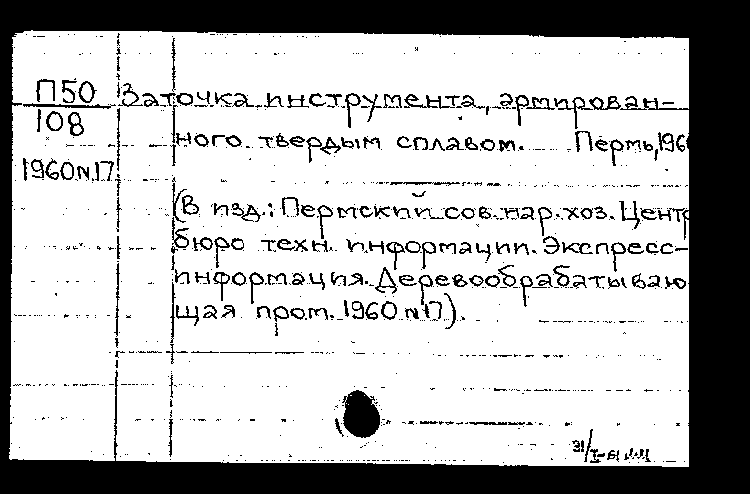 П50 Заточка инструмента, армирован-
108
ного твердым сплавом. Пермь, 196
1960 N17
(В изд.: Пермский сов. нар. хоз. Центр
бюро техн. информации. Экспресс-
информация. Деревообрабатываю
щая пром. 1960 N17).
31/I-61